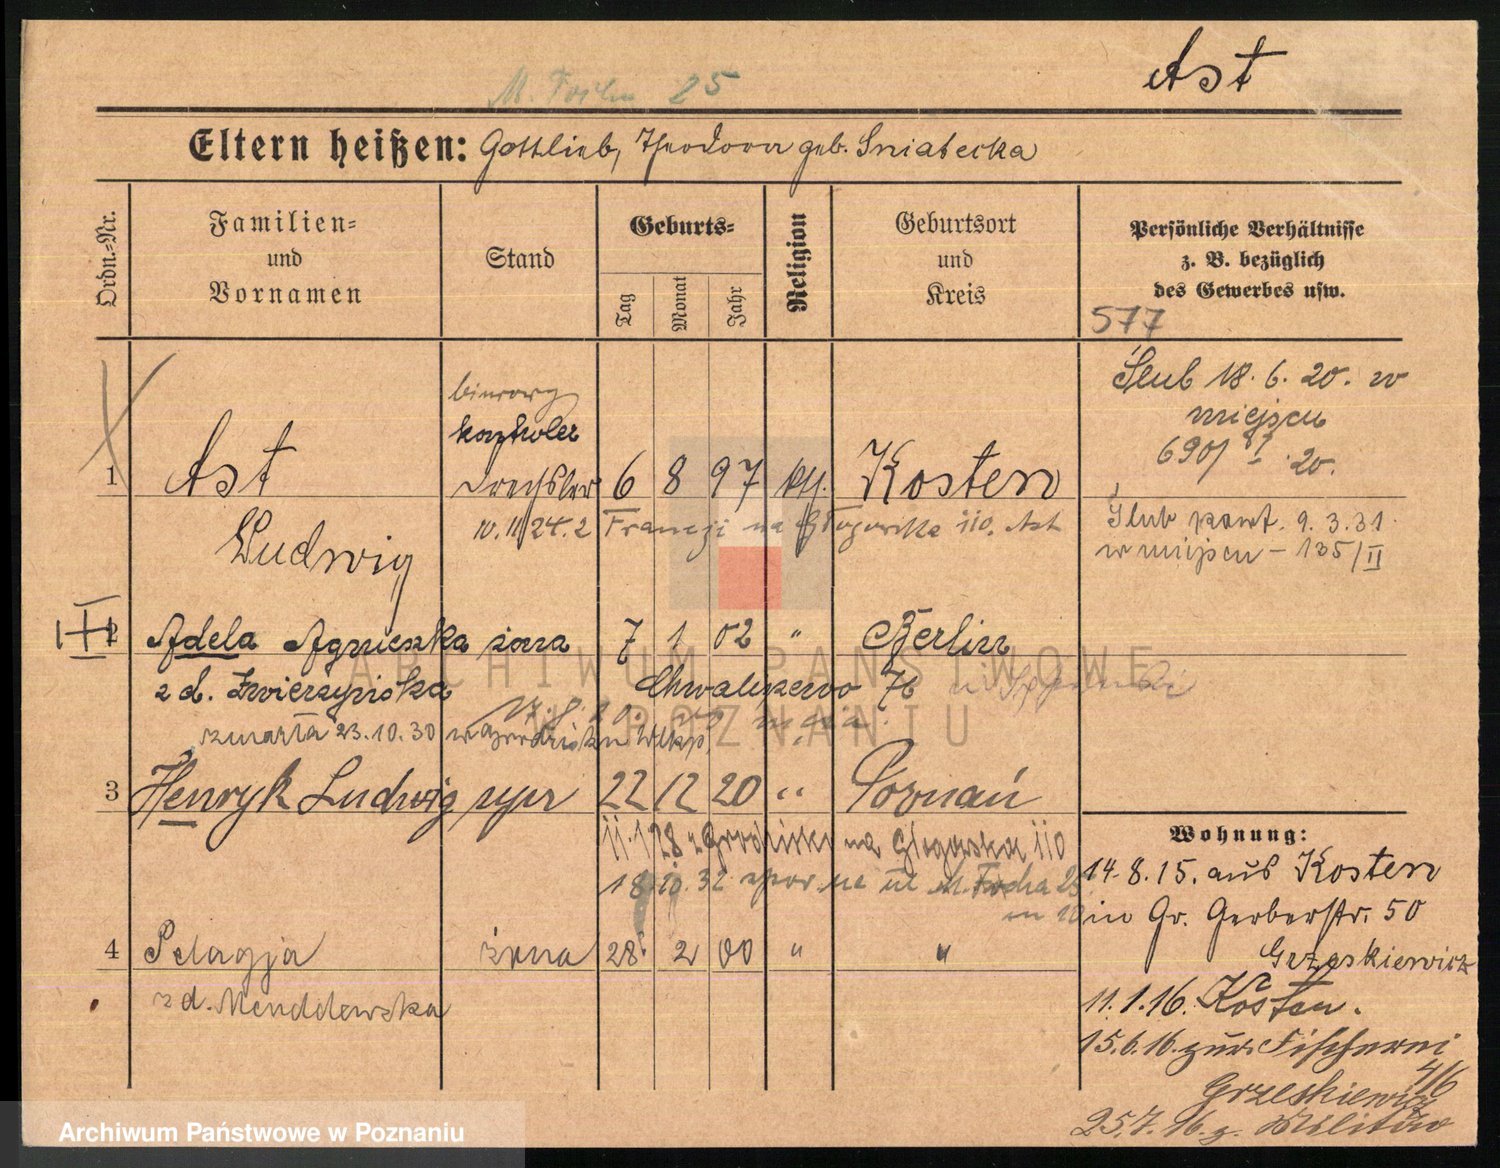 Ast
M. Focha 25
Eltern heißen: Gottlieb, Theodora geb. Sniatecka
Ordn.-Nr.
Familien- und Vornamen
Stand
Geburts-
Tag
Monat
Jahr
Religion
Geburtsort und Kreis
Persönliche Verhältnisse
z. B. bezüglich
des Gewerbes usw.
577
biurowy
kontroler
1 Ast Drechsler 6 8 97 kth. Kosten
Ludwig
10. 11 24. 2 Francji na Głogowska 110. Ast
Ślub 18. 6. 20. w
miejscu
690/ 20.
Ślub kant. 9. 3. 31
w miejscu – 135/II
2 Adela Agnieszka żona 7 1 02 " Berlin
z d. Zwierzyńska Chwaliszewo 76
zmarła 23.10.30 w Grodzisku Wlkp.
3 Henryk Ludwig syn 22 12 20 " Poznań
11.1.28 z Grodziska na Głogowska 110
18.10.32 na ul M. Focha 25
m 10
4 Pelagja żona 28. 2 00 " "
z d. Mendelewska
Wohnung:
14. 8. 15. aus Kosten
in Gr. Gerberstr. 50
Grzeskiewicz
11. 1. 16. Kosten.
15. 6. 16. zur Fischerei
4/6
Grzeskiewicz
25. 7. 16. z. Militär
ARCHIWUM PAŃSTWOWE
W POZNANIU
Archiwum Państwowe w Poznaniu